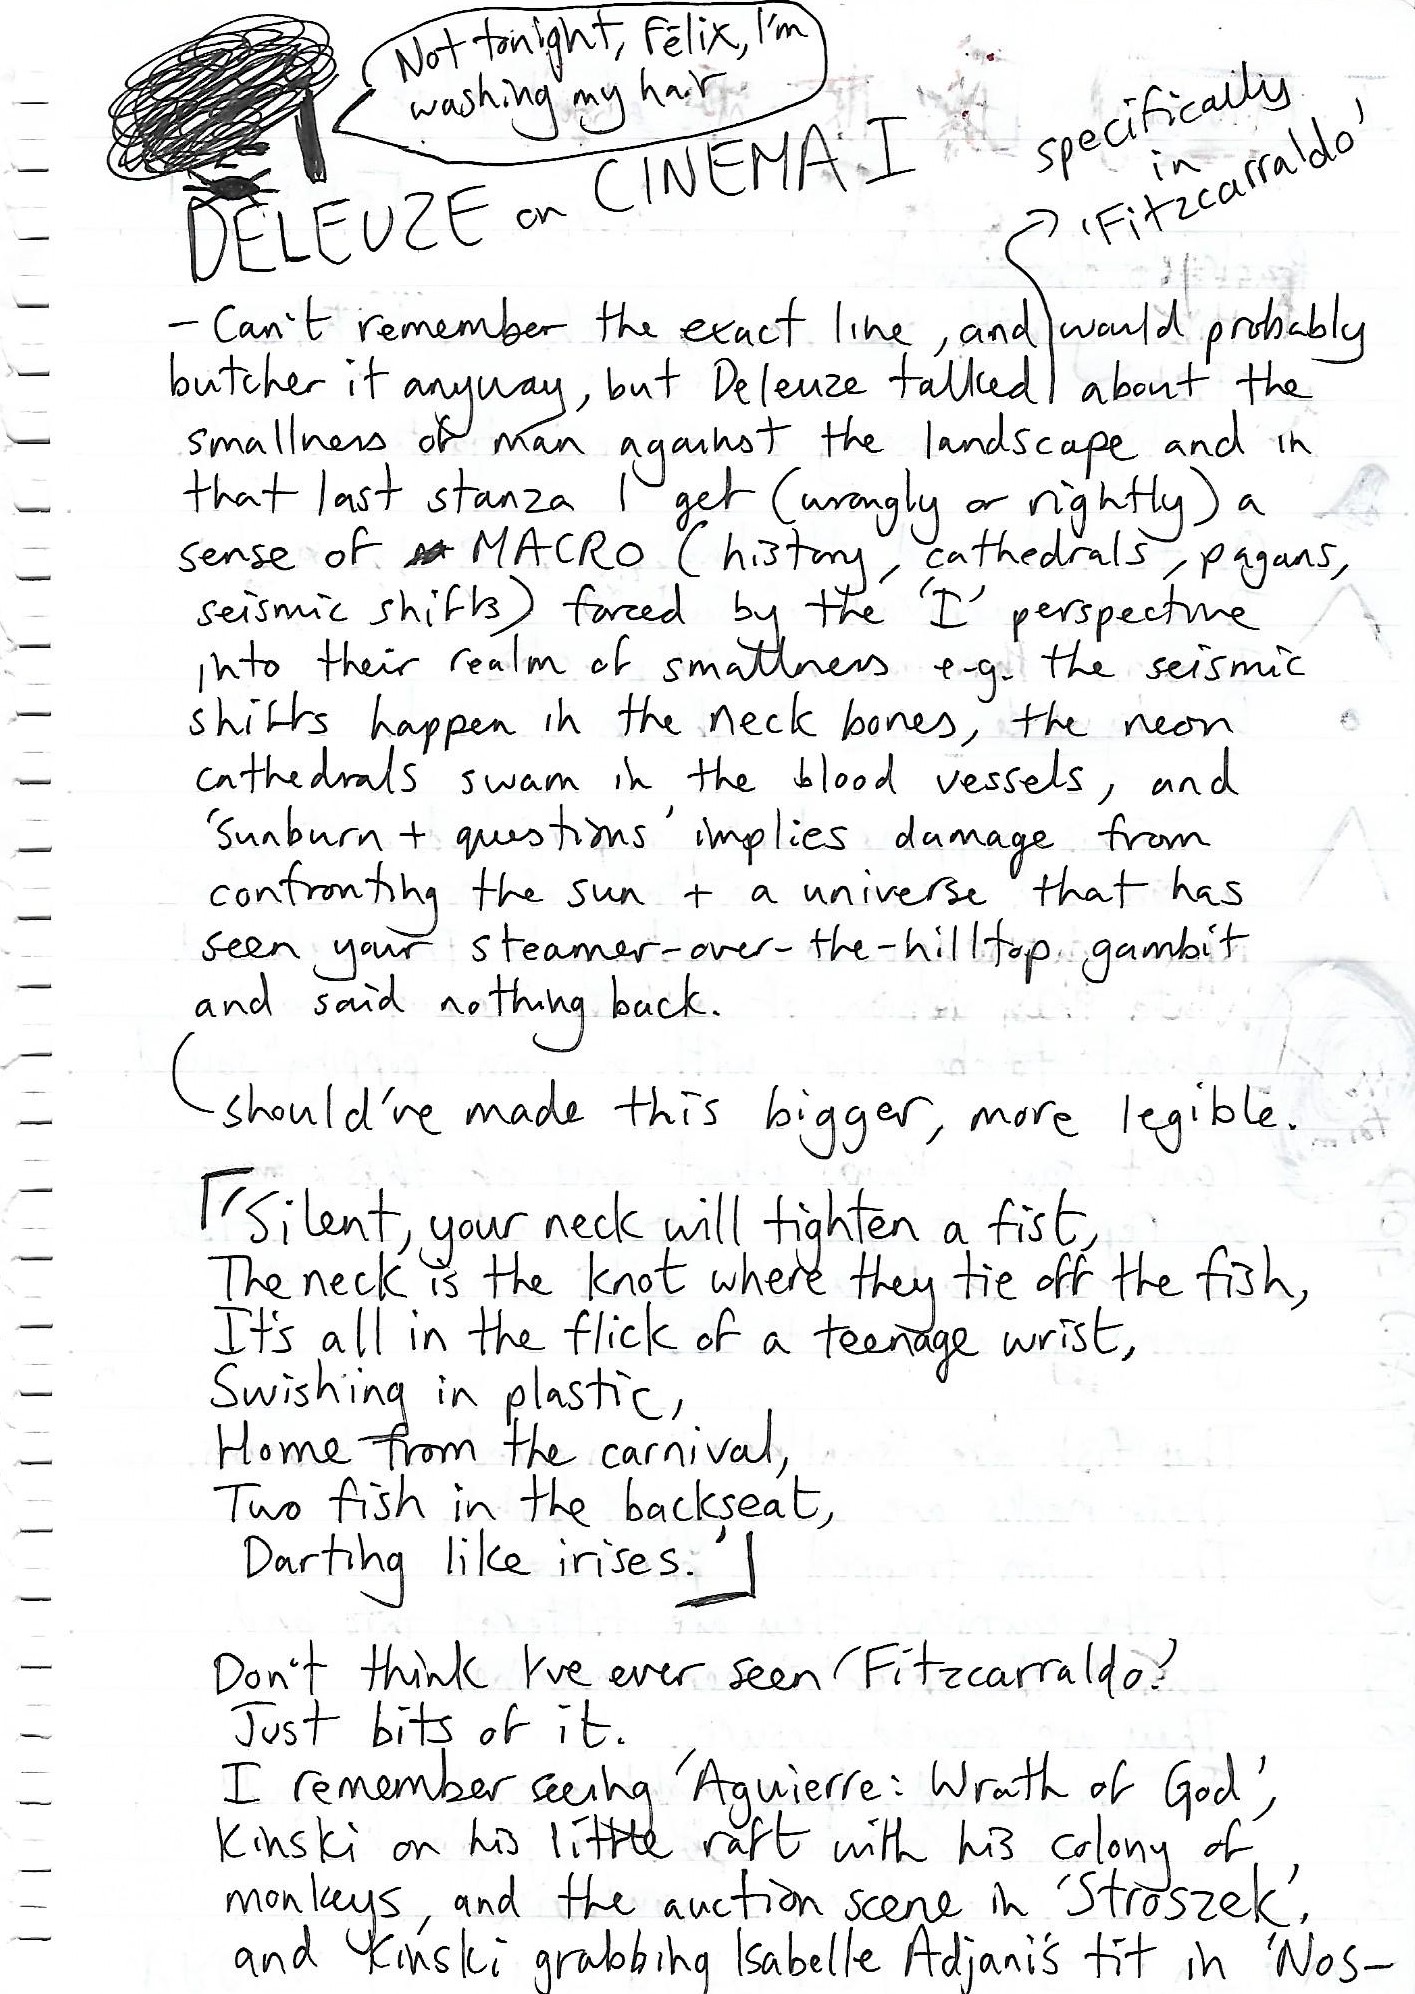 Not tonight, Félix, I'm
washing my hair
DELEUZE on CINEMA I
specifically
in
'Fitzcarraldo'
- Can't remember the exact line, and would probably
butcher it anyway, but Deleuze talked about the
smallness of man against the landscape and in
that last stanza I get (wrongly or rightly) a
sense of MACRO (history, cathedrals, pagans,
seismic shifts) forced by the 'I' perspective
into their realm of smallness e.g. the seismic
shifts happen in the neck bones, the neon
cathedrals swam in the blood vessels, and
'sunburn + questions' implies damage from
confronting the sun + a universe that has
seen your steamer-over-the-hilltop gambit
and said nothing back.
should've made this bigger, more legible.
「'Silent, your neck will tighten a fist,
The neck is the knot where they tie off the fish,
It's all in the flick of a teenage wrist,
Swishing in plastic,
Home from the carnival,
Two fish in the backseat,
Darting like irises.'」
Don't think I've ever seen 'Fitzcarraldo?'
Just bits of it.
I remember seeing 'Aguierre: Wrath of God',
Kinski on his little raft with his colony of
monkeys, and the auction scene in 'Stroszek',
and Kinski grabbing Isabelle Adjani's tit in 'Nos-